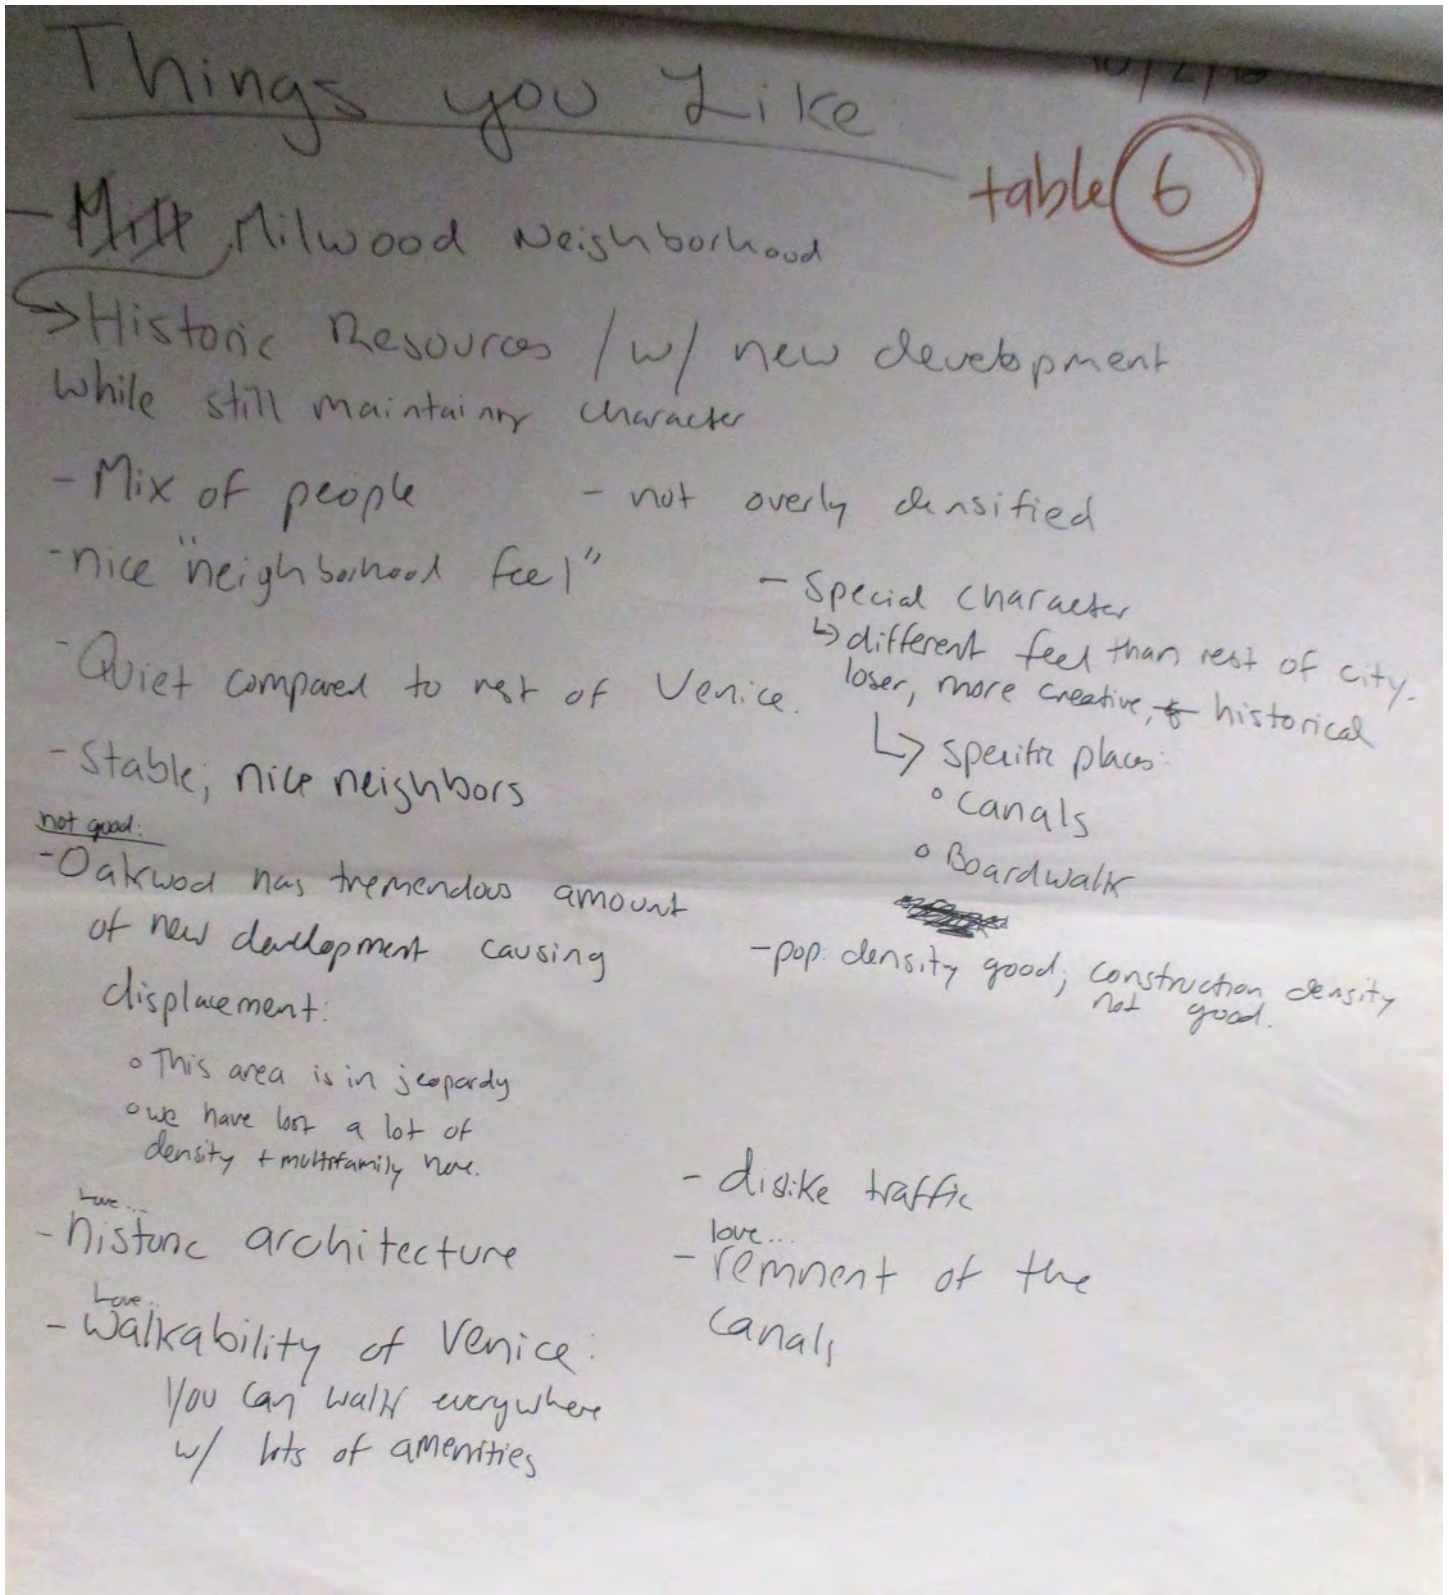 Things you Like
table 6
- Milwood Neighborhood
→ Historic Resources / w/ new development
while still maintaining character
- Mix of people
- not overly densified
- nice "neighborhood feel"
- Quiet compared to rest of Venice.
- Stable, nice neighbors
not good:
- Oakwod has tremendous amount
of new development causing
displacement:
◦ This area is in jeopardy
◦ we have lost a lot of
density + multifamily here.
Love...
- historic architecture
Love..
- Walkability of Venice:
you can walk everywhere
w/ lots of amenities
- Special character
↳ different feel than rest of city.
loser, more creative, historical
↳ specific places:
◦ Canals
◦ Boardwalk
- pop. density good; construction density
not good.
- dislike traffic
love...
- remnent of the
canals